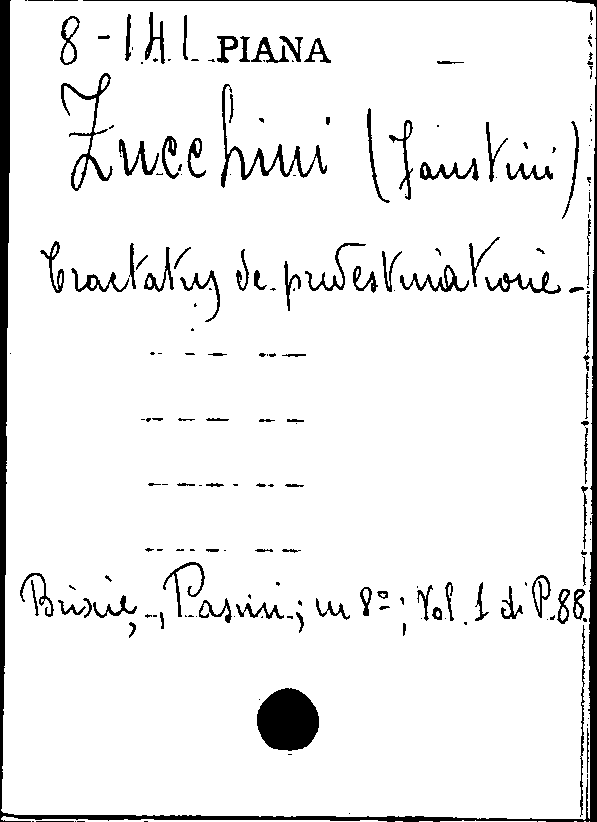 8-141 PIANA –
Zucchini (Faustini)
Tractatus de predestinatione -
Brixie, -, Pasini; in 8º; Vol. 1 di P. 88